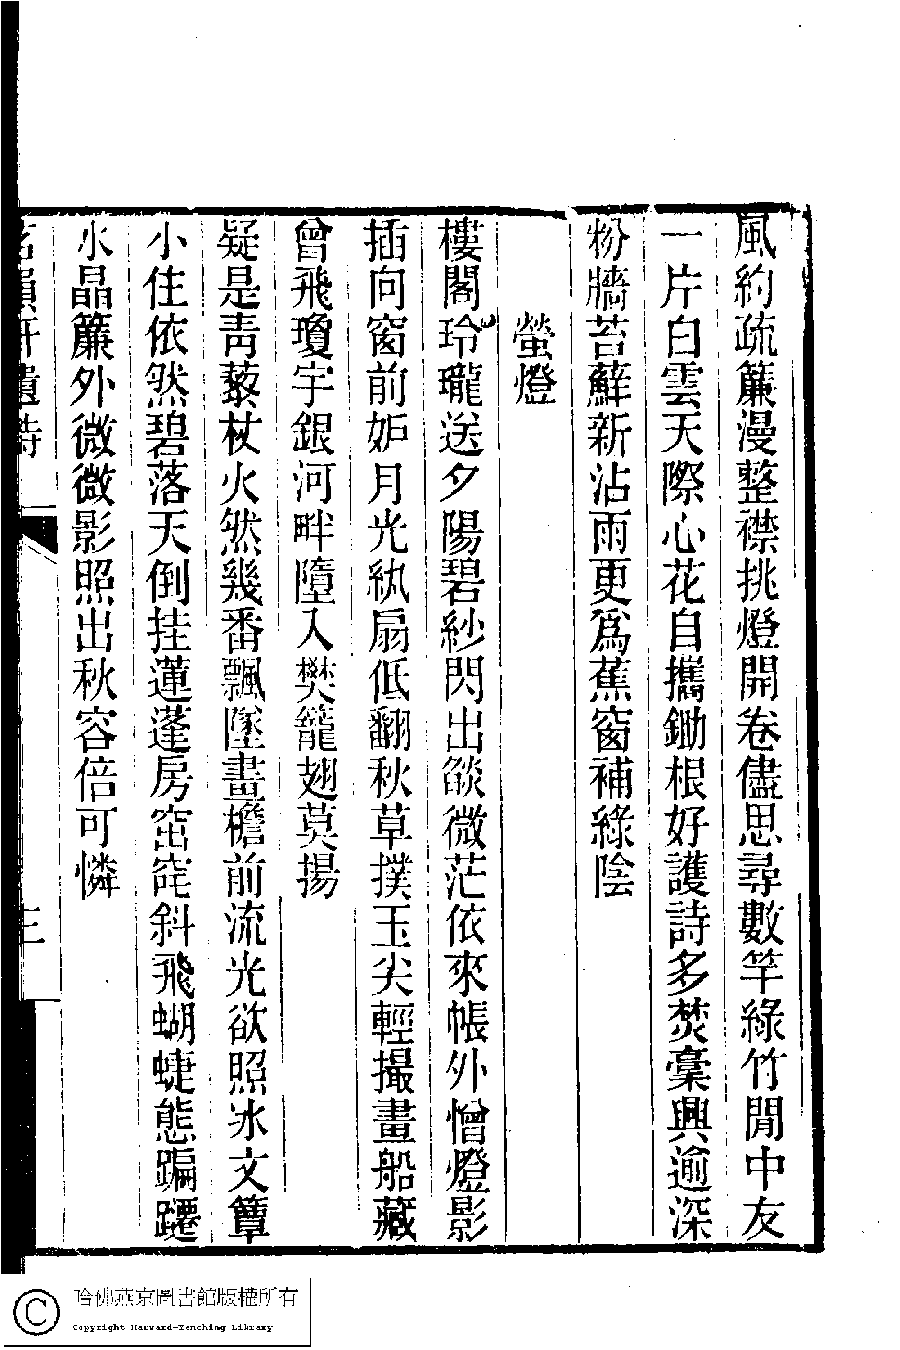 風約疏簾漫整襟挑燈開卷儘思尋數竿綠竹閒中友
一片白雲天際心花自攜鋤根好護詩多焚稾興逾深
粉牆苔蘚新沾雨更爲蕉窗補綠陰
螢燈
樓閣玲瓏送夕陽碧紗閃出燄微茫依來帳外憎燈影
插向窗前妬月光紈扇低翻秋草撲玉尖輕撮畫船藏
曾飛瓊宇銀河畔墮入樊籠翅莫揚
疑是靑藜杖火然幾番飄墜畫檐前流光欲照氷文簟
小住依然碧落天倒挂蓮蓬房窋窕斜飛蝴蜨態蹁躚
水晶簾外微微影照出秋容倍可憐
韻軒遺詩
三
哈佛燕京圖書館版權所有
Copyright Harvard-Yenching Library